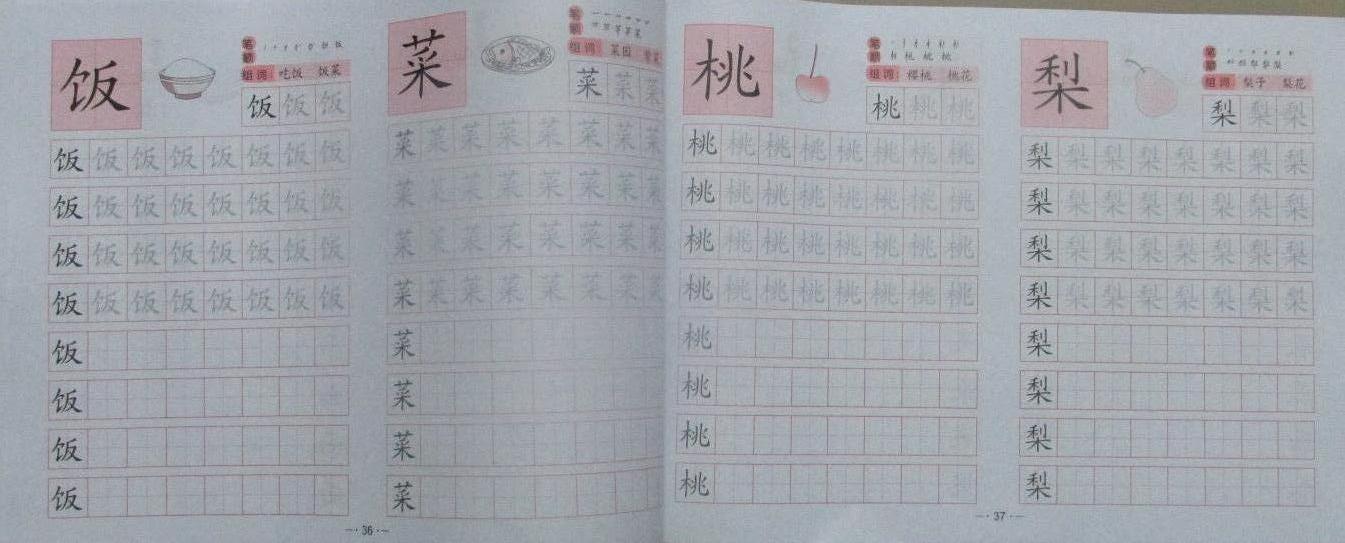 饭
笔顺
组词 吃饭 饭菜
饭 饭 饭
饭 饭 饭 饭 饭 饭 饭 饭
饭 饭 饭 饭 饭 饭 饭 饭
饭 饭 饭 饭 饭 饭 饭 饭
饭 饭 饭 饭 饭 饭 饭 饭
饭
饭
饭
饭
菜
笔顺
组词 菜园
菜 菜 菜
菜 菜 菜 菜 菜 菜 菜 菜
菜 菜 菜 菜 菜 菜 菜 菜
菜 菜 菜 菜 菜 菜 菜 菜
菜 菜 菜 菜 菜 菜 菜 菜
菜
菜
菜
菜
36
桃
笔顺
组词 樱桃 桃花
桃 桃 桃
桃 桃 桃 桃 桃 桃 桃 桃
桃 桃 桃 桃 桃 桃 桃 桃
桃 桃 桃 桃 桃 桃 桃 桃
桃 桃 桃 桃 桃 桃 桃 桃
桃
桃
桃
桃
梨
笔顺
组词 梨子 梨花
梨 梨 梨
梨 梨 梨 梨 梨 梨 梨 梨
梨 梨 梨 梨 梨 梨 梨 梨
梨 梨 梨 梨 梨 梨 梨 梨
梨 梨 梨 梨 梨 梨 梨 梨
梨
梨
梨
梨
37